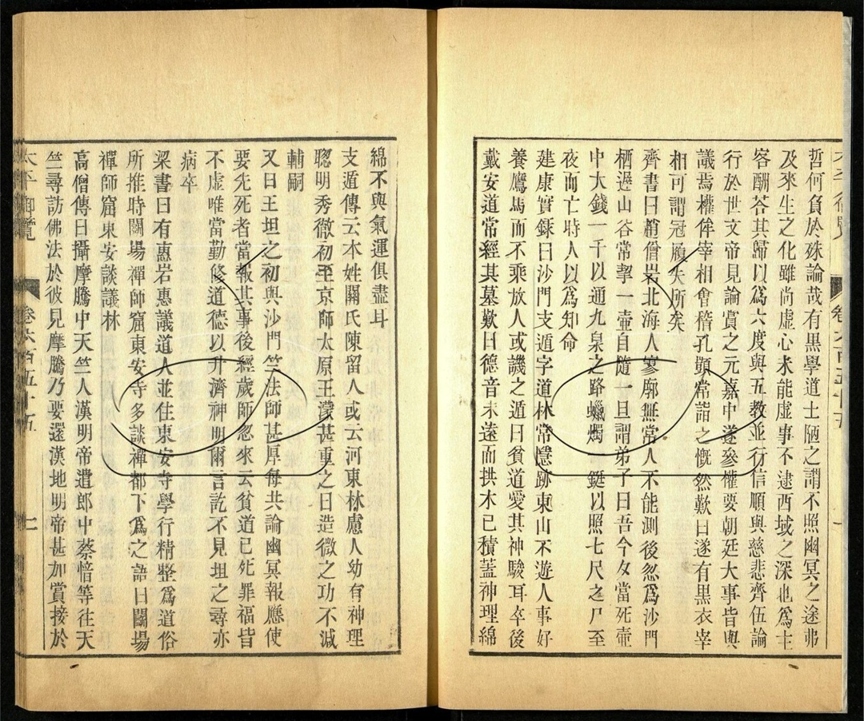 哲何負於殊論哉有黑學道士陋之謂不照幽冥之途弗
及來生之化雖尚虛心未能虛事不逮西域之深也為主
客酬答其歸以為六度與五教並行信順與慈悲齊伍論
行於世文帝見論賞之元嘉中遂參權要朝廷大事皆與
議焉權侔宰相會稽孔顗常詣之慨然歎曰遂有黑衣宰
相可謂冠履失所矣
齊書曰趙僧巖北海人寥廓無常人不能測後忽為沙門
栖遲山谷常挈一壺自隨一旦謂弟子曰吾今夕當死壺
中大錢一千以通九泉之路蠟燭一鋌以照七尺之尸至
夜而亡時人以為知命
建康實錄曰沙門支遁字道林常隱跡東山不遊人事好
養鷹馬而不乘放人或譏之遁曰貧道愛其神駿耳卒後
戴安道常經其墓歎曰德音未遠而拱木已積蓋神理綿
綿不與氣運俱盡耳
支遁傳云本姓關氏陳留人或云河東林慮人幼有神理
聰明秀徹初至京師太原王濛甚重之曰造微之功不減
輔嗣
又曰王坦之初與沙門竺法師甚厚每共論幽冥報應使
要先死者當報其事後經歲師忽來云貧道已死罪福皆
不虛唯當勤修道德以升濟神明爾言訖不見坦之尋亦
病卒
梁書曰有惠岩惠議道人並住東安寺學行精整為道俗
所推時鬭場禪師窟東安寺多談禪都下為之語曰鬭場
禪師窟東安談議林
高僧傳曰攝摩騰中天竺人漢明帝遣郎中蔡愔等往天
竺尋訪佛法於彼見摩騰乃要還漢地明帝甚加賞接於
太平御覽 卷六百五十五 七